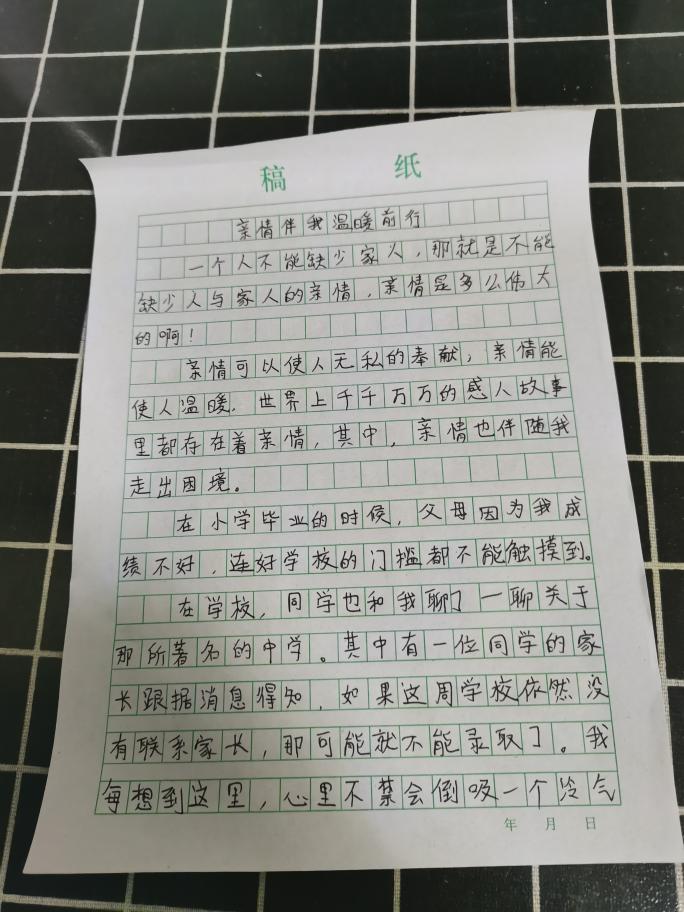 稿 纸
亲情伴我温暖前行
一个人不能缺少家人,那就是不能
缺少人与家人的亲情,亲情是多么伟大
的啊!
亲情可以使人无私的奉献,亲情能
使人温暖。世界上千千万万的感人故事
里都存在着亲情,其中,亲情也伴随我
走出困境。
在小学毕业的时候,父母因为我成
绩不好,连好学校的门槛都不能触摸到。
在学校,同学也和我聊了一聊关于
那所著名的中学。其中有一位同学的家
长跟据消息得知,如果这周学校依然没
有联系家长,那可能就不能录取了。我
每想到这里,心里不禁会倒吸一个冷气
年 月 日